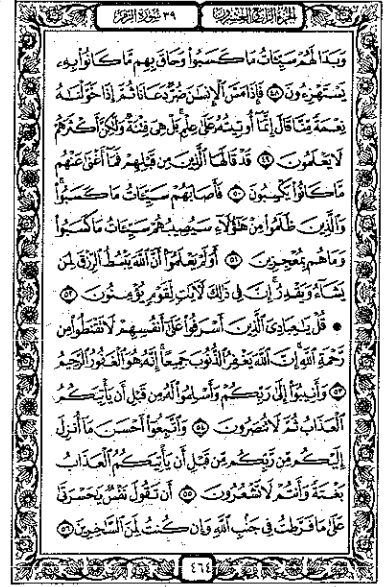 الجزء الرابع والعشرون
٣٩ سورة الزمر
وَبَدَا لَهُمْ سَيِّئَاتُ مَا كَسَبُوا۟ وَحَاقَ بِهِم مَّا كَانُوا۟ بِهِۦ
يَسْتَهْزِءُونَ ٤٨ فَإِذَا مَسَّ ٱلْإِنسَٰنَ ضُرٌّ دَعَانَا ثُمَّ إِذَا خَوَّلْنَٰهُ
نِعْمَةً مِّنَّا قَالَ إِنَّمَآ أُوتِيتُهُۥ عَلَىٰ عِلْمٍۭ بَلْ هِىَ فِتْنَةٌ وَلَٰكِنَّ أَكْثَرَهُمْ
لَا يَعْلَمُونَ ٤٩ قَدْ قَالَهَا ٱلَّذِينَ مِن قَبْلِهِمْ فَمَآ أَغْنَىٰ عَنْهُم
مَّا كَانُوا۟ يَكْسِبُونَ ٥٠ فَأَصَابَهُمْ سَيِّئَاتُ مَا كَسَبُوا۟ۚ
وَٱلَّذِينَ ظَلَمُوا۟ مِنْ هَٰٓؤُلَآءِ سَيُصِيبُهُمْ سَيِّئَاتُ مَا كَسَبُوا۟
وَمَا هُم بِمُعْجِزِينَ ٥١ أَوَلَمْ يَعْلَمُوٓا۟ أَنَّ ٱللَّهَ يَبْسُطُ ٱلرِّزْقَ لِمَن
يَشَآءُ وَيَقْدِرُۚ إِنَّ فِى ذَٰلِكَ لَءَايَٰتٍ لِّقَوْمٍ يُؤْمِنُونَ ٥٢
۞ قُلْ يَٰعِبَادِىَ ٱلَّذِينَ أَسْرَفُوا۟ عَلَىٰٓ أَنفُسِهِمْ لَا تَقْنَطُوا۟ مِن
رَّحْمَةِ ٱللَّهِۚ إِنَّ ٱللَّهَ يَغْفِرُ ٱلذُّنُوبَ جَمِيعًاۚ إِنَّهُۥ هُوَ ٱلْغَفُورُ ٱلرَّحِيمُ
٥٣ وَأَنِيبُوٓا۟ إِلَىٰ رَبِّكُمْ وَأَسْلِمُوا۟ لَهُۥ مِن قَبْلِ أَن يَأْتِيَكُمُ
ٱلْعَذَابُ ثُمَّ لَا تُنصَرُونَ ٥٤ وَٱتَّبِعُوٓا۟ أَحْسَنَ مَآ أُنزِلَ
إِلَيْكُم مِّن رَّبِّكُم مِّن قَبْلِ أَن يَأْتِيَكُمُ ٱلْعَذَابُ
بَغْتَةً وَأَنتُمْ لَا تَشْعُرُونَ ٥٥ أَن تَقُولَ نَفْسٌ يَٰحَسْرَتَىٰ
عَلَىٰ مَا فَرَّطتُ فِى جَنۢبِ ٱللَّهِ وَإِن كُنتُ لَمِنَ ٱلسَّٰخِرِينَ ٥٦
٤٦٤